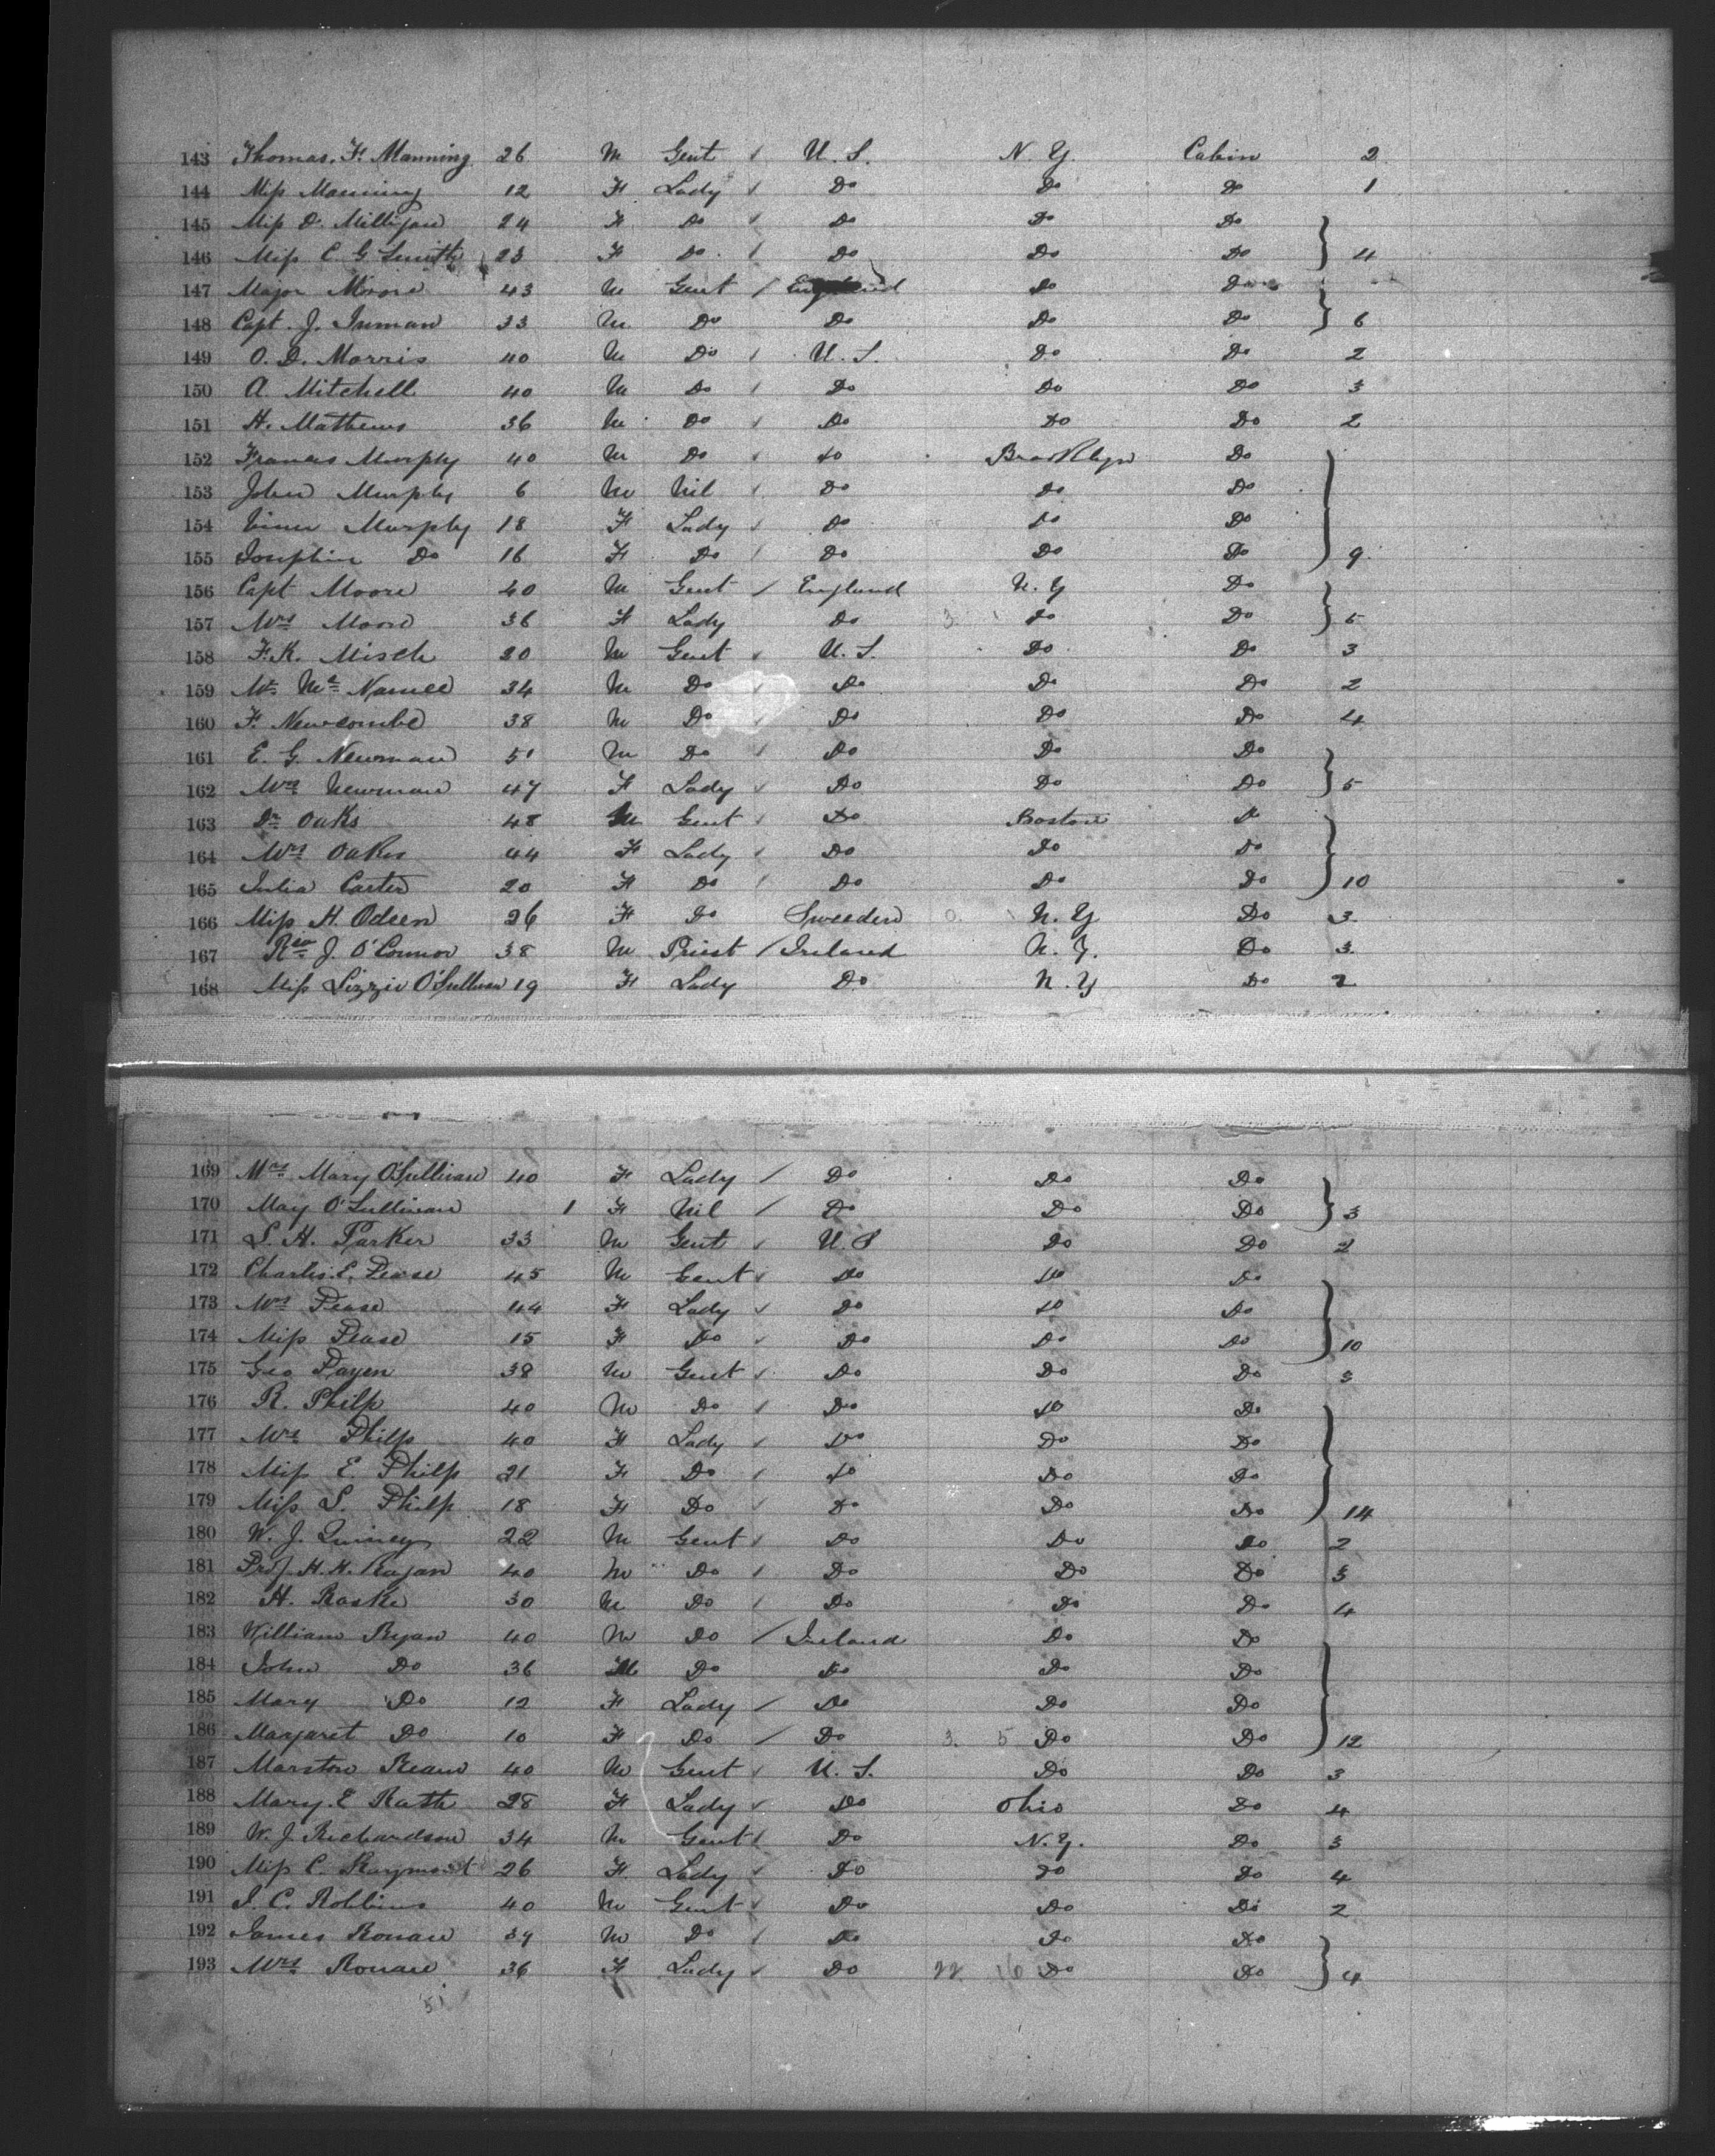 143 Thomas. F. Manning 26 M Gent / U. S. N. Y. Cabin 2
144 Miss Manning 12 F Lady / Do Do Do 1
145 Miss D. Milligan 24 F Do / Do Do Do
146 Miss C. G. Smith 23 F Do / Do Do Do 4
147 Major Moore 43 M Gent / England Do Do
148 Capt. J. Inman 33 M Do Do Do Do 6
149 O. D. Morris 40 M Do / U. S. Do Do 2
150 A. Mitchell 40 M Do / Do Do Do 3
151 H. Mathews 36 M Do / Do Do Do 2
152 Frances Murphy 40 M Do / Do Brooklyn Do
153 John Murphy 6 M Nil / Do Do Do
154 Murphy 18 F Lady / Do Do Do
155 Josephin Do 16 F Do / Do Do Do 9
156 Capt Moore 40 M Gent / England N. Y Do
157 Mrs Moore 36 F Lady Do 3 Do Do 5
158 F. K. Misch 20 M Gent / U. S. Do Do 3
159 Mr Mc Namee 34 M Do / Do Do Do 2
160 F. Newcombe 38 M Do / Do Do Do 4
161 E. G. Newman 51 M Do / Do Do Do
162 Mrs Newman 47 F Lady / Do Do Do 5
163 Dr Oaks 48 M Gent / Do Boston Do
164 Mrs Oakes 44 F Lady / Do Do Do
165 Julia Carter 20 F Do / Do Do Do 10
166 Miss H. Odeen 26 F Do Sweeden 0 N. Y Do 3
167 Rev J. O'Connor 38 M Priest / Ireland N. Y. Do 3
168 Miss Lizzie O'Sullivan 19 F Lady Do N. Y Do 2
169 Mrs Mary O'Sullivan 40 F Lady / Do Do Do
170 May O'Sullivan 1 F Nil / Do Do Do 3
171 S. H. Parker 33 M Gent / U. S Do Do 2
172 Charles. E. Pease 45 M Gent / Do Do Do
173 Mrs Pease 44 F Lady / Do Do Do
174 Miss Pease 15 F Do / Do Do Do 10
175 Geo Payen 38 M Gent / Do Do Do 3
176 R. Philp 40 M Do / Do Do Do
177 Mrs Philp 40 F Lady / Do Do Do
178 Miss E. Philp 21 F Do / Do Do Do
179 Miss S. Philp 18 F Do / Do Do Do 14
180 W. J. Quincy 22 M Gent / Do Do Do 2
181 Prof. H. H. Ragan 40 M Do / Do Do Do 3
182 H. Raske 30 M Do / Do Do Do 4
183 William Ryan 40 M Do / Ireland Do Do
184 John Do 36 M Do Do Do Do
185 Mary Do 12 F Lady / Do Do Do
186 Margaret Do 10 F Do / Do 3. 5 Do Do 12
187 Marston 40 M Gent / U. S. Do Do 3
188 Mary. E Rath 28 F Lady / Do Ohio Do 4
189 W. J. Richardson 34 M Gent / Do N. Y. Do 3
190 Miss C. Raymont 26 F. Lady / Do Do Do 4
191 J. C. Robbins 40 M Gent / Do Do Do 2
192 James Ronan 39 M Do / Do Do Do
193 Mrs Ronan 36 F Lady / Do 22 16 Do Do 4
51